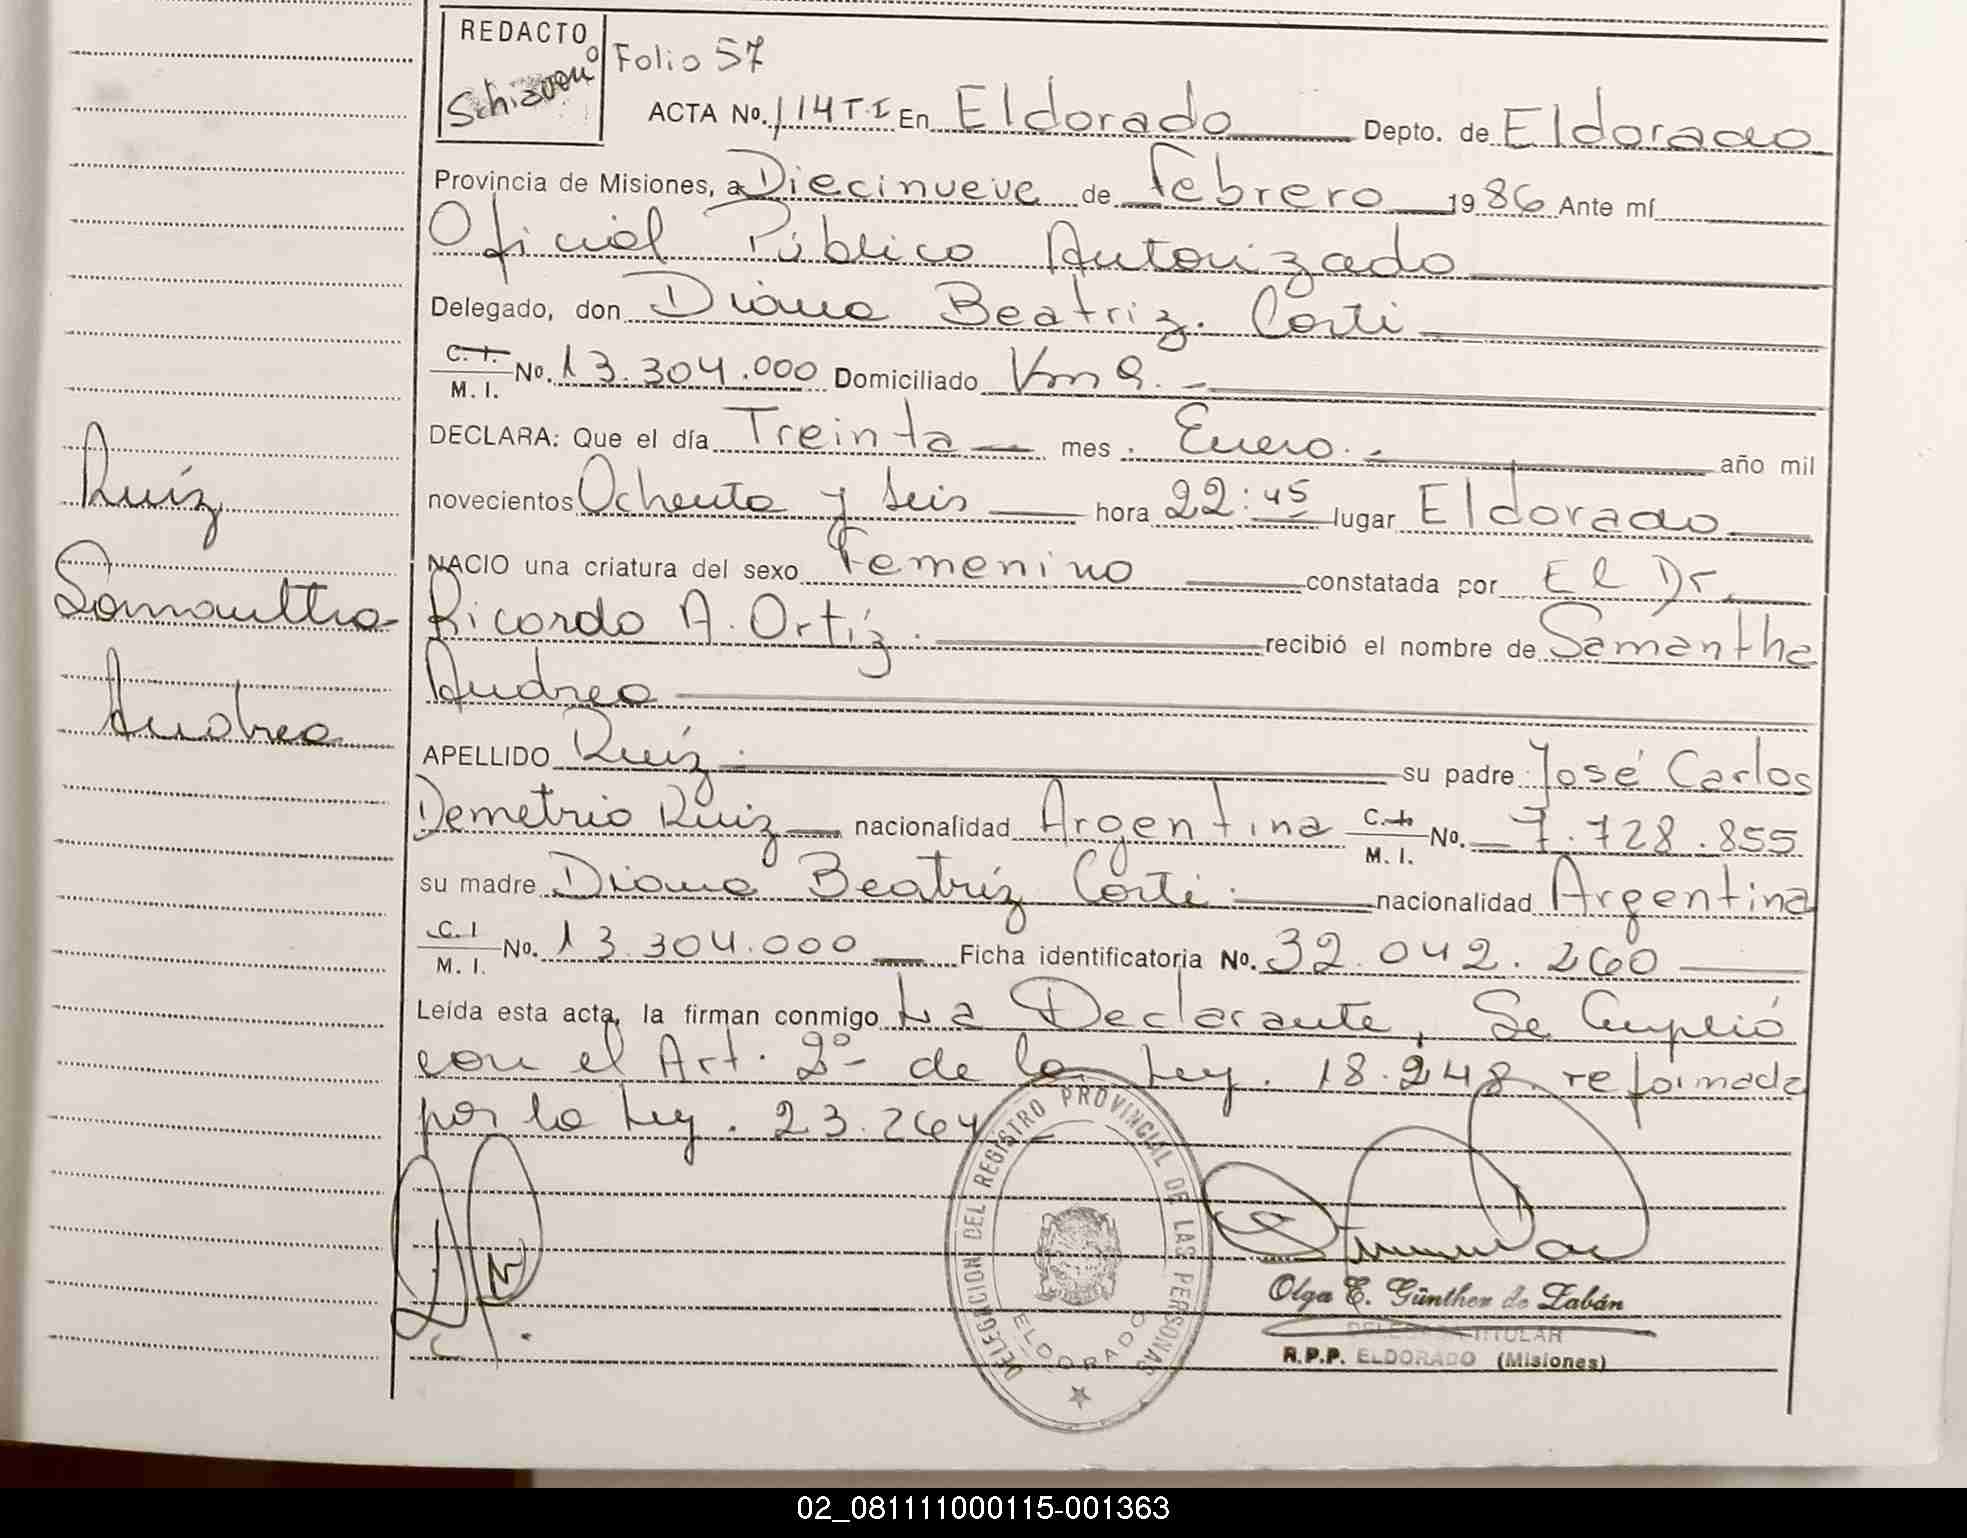 REDACTO
Schiavoni
Folio 57
ACTA No. 114 T·I En Eldorado Depto. de Eldorado
Provincia de Misiones, a Diecinueve de Febrero 1986 Ante mí
Oficial Público Autorizado
Delegado, don Diana Beatriz. Corti
C. I. / M. I. No. 13.304.000 Domiciliado Km 9.
DECLARA: Que el día Treinta mes Enero. año mil
novecientos Ochenta y seis hora 22:45 lugar Eldorado
NACIO una criatura del sexo Femenino constatada por El Dr.
Ricardo A. Ortíz. recibió el nombre de Samantha
Andrea
APELLIDO Ruíz su padre José Carlos
Demetrio Ruiz nacionalidad Argentina C. I. / M. I. No. 7.728.855
su madre Diana Beatríz Corti nacionalidad Argentina
C. I / M. I. No. 13.304.000 Ficha identificatoria No. 32.042.260
Leída esta acta, la firman conmigo La Declarante, Se Cumplió
con el Art. 2º de la Ley. 18.248. reformada
por la Ley. 23.264
Ruíz
Samantha
Andrea
DELEGACION DEL REGISTRO PROVINCIAL DE LAS PERSONAS
ELDORADO
Olga E. Günther de Zabán
DELEGADA TITULAR
R.P.P. ELDORADO (Misiones)
02_081111000115-001363